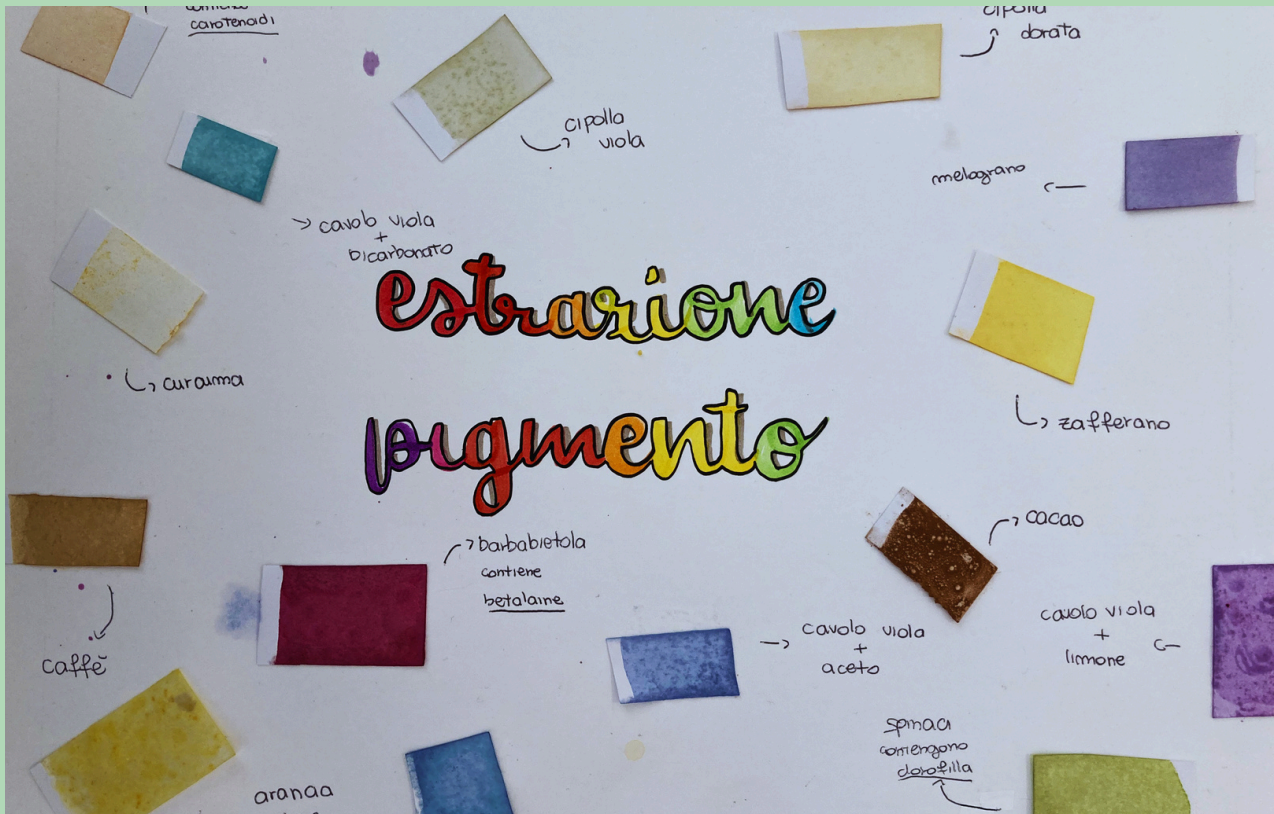 carotenoidi
cipolla
dorata
cipolla
viola
melograno
cavolo viola
+
bicarbonato
estrazione
pigmento
curcuma
zafferano
cacao
barbabietola
contiene
betalaine
cavolo viola
+
aceto
cavolo viola
+
limmone
caffè
spinaci
contengono
clorofilla